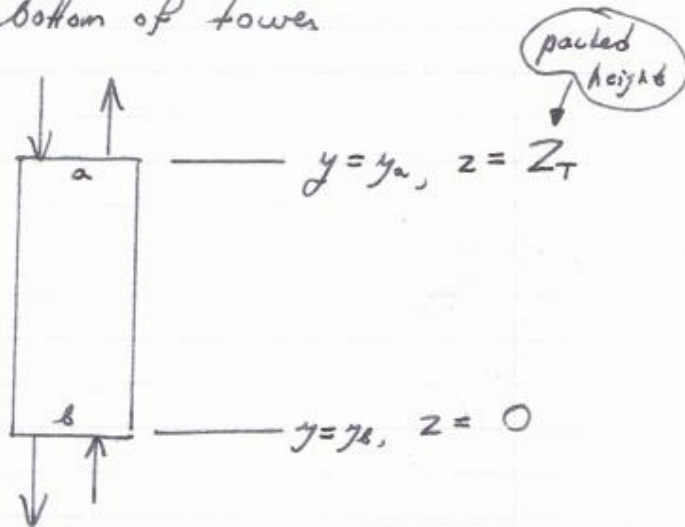 bottom of tower
packed
height
a
y = yₐ, z = Z_T
b
y = y_b, z = 0